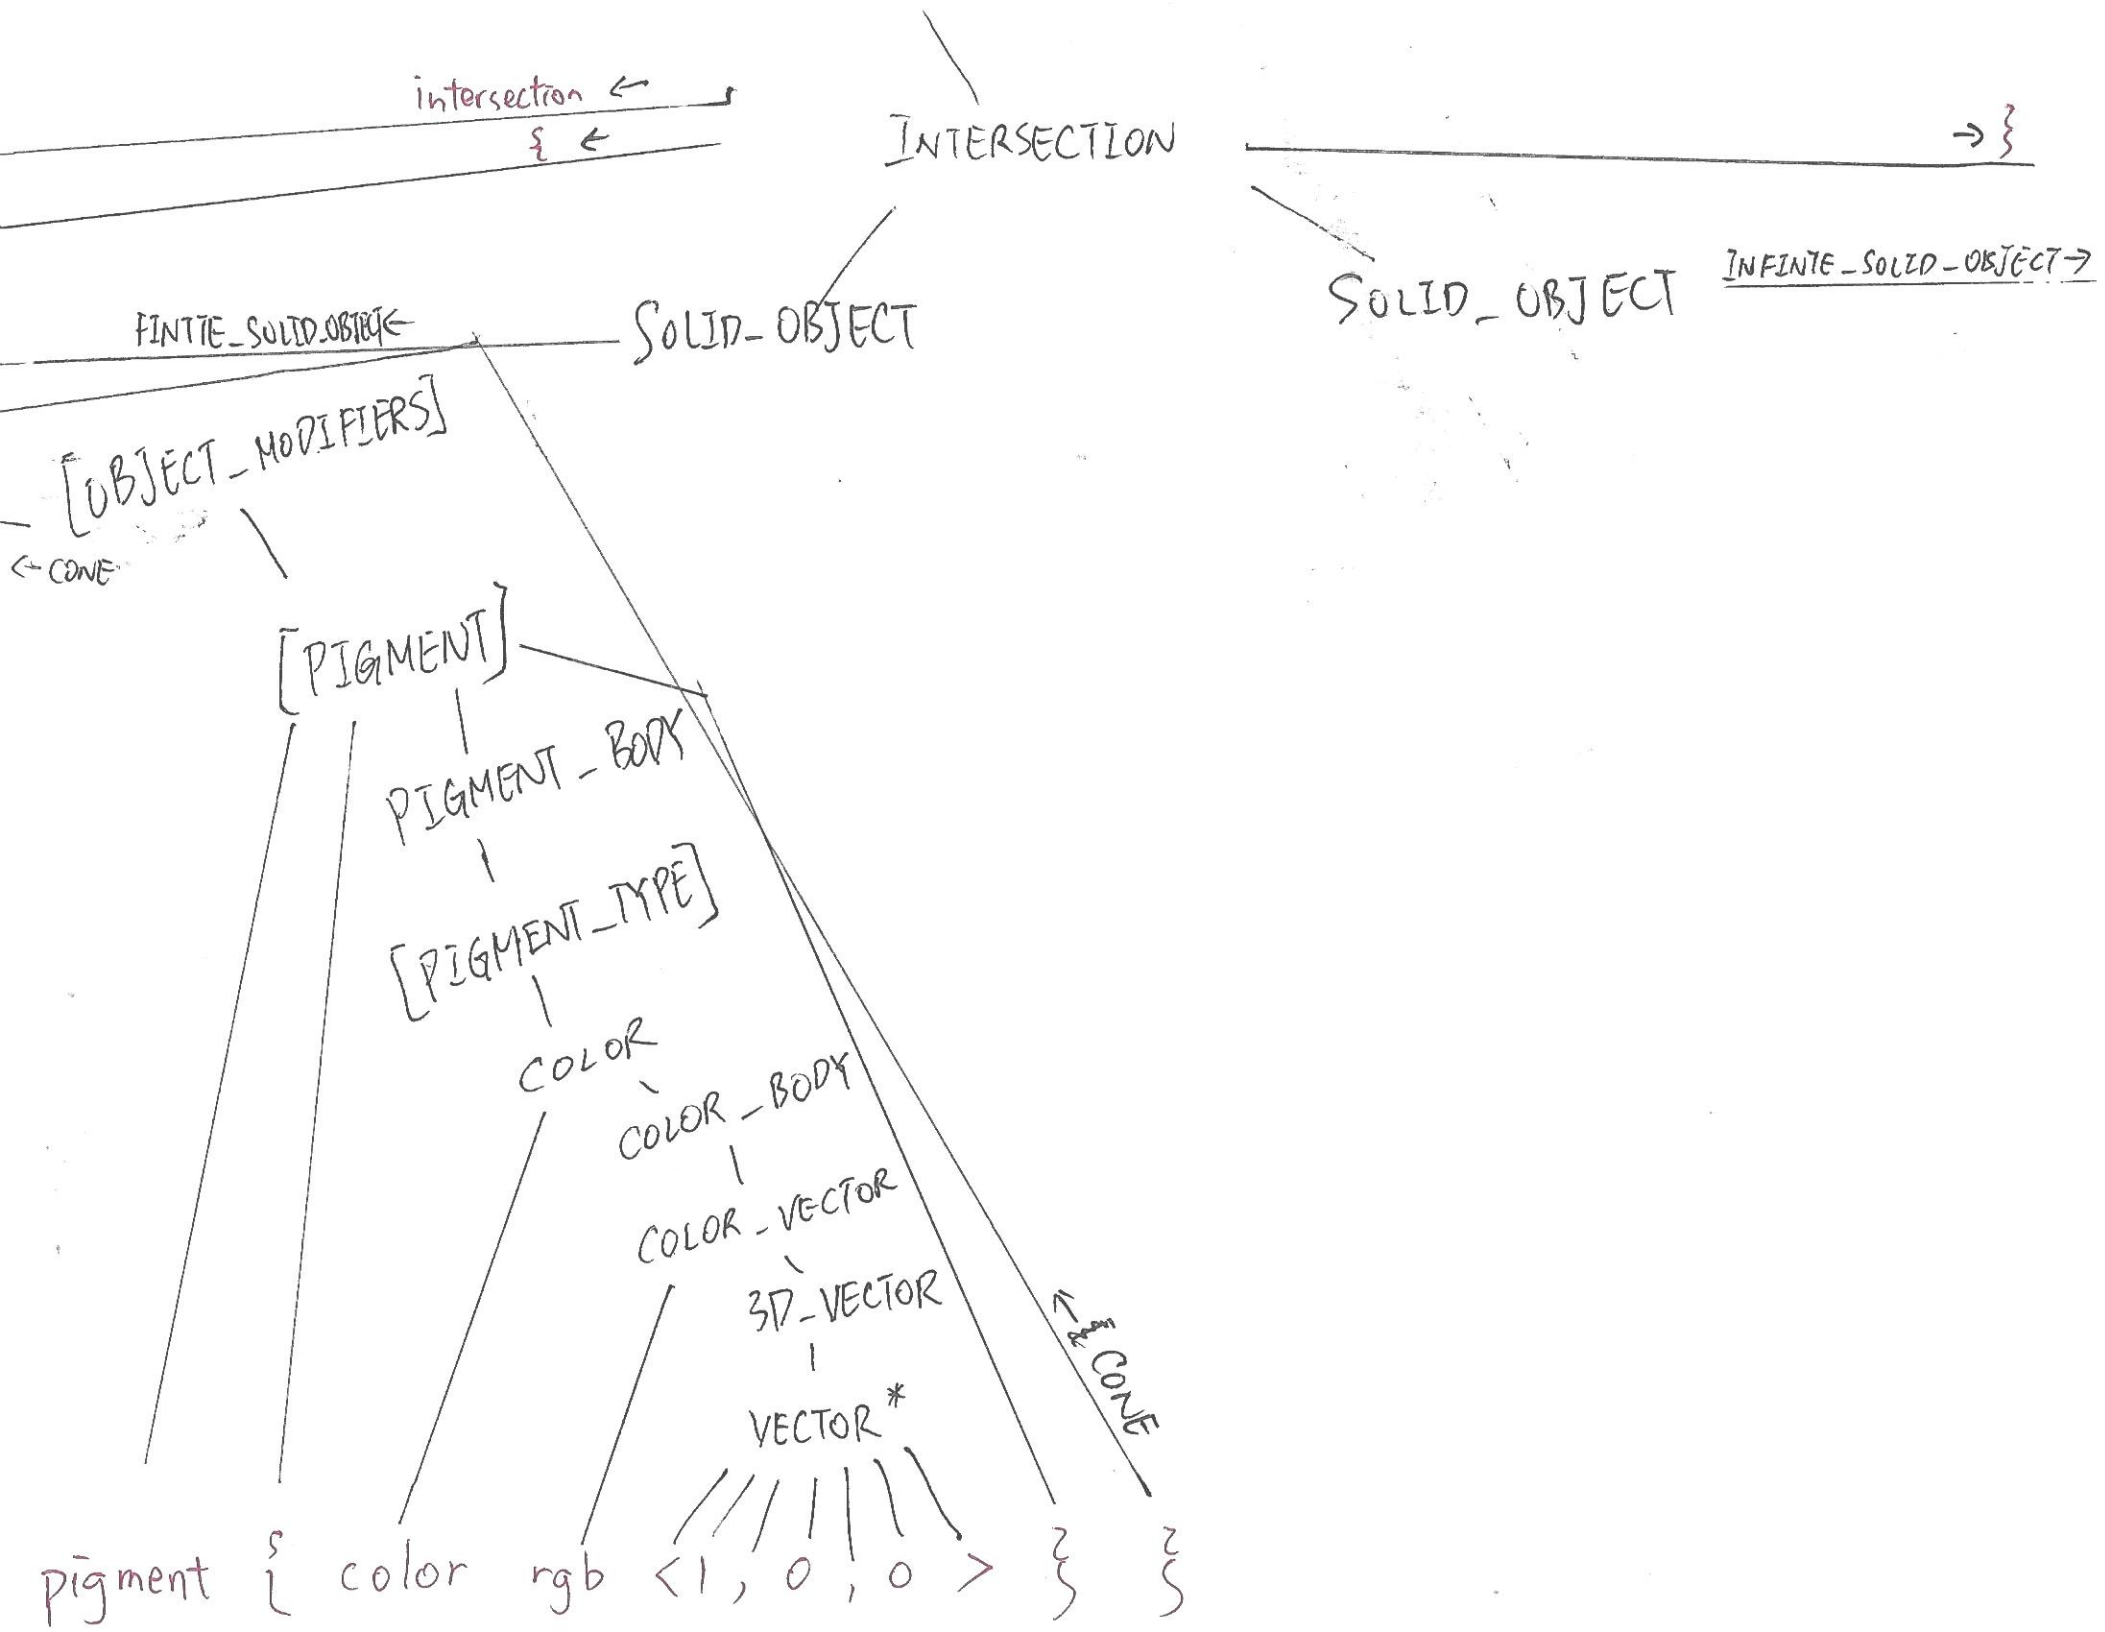 intersection ←
{ ←
INTERSECTION
→ }
FINTIE_SOLID_OBJECT←
SOLID_OBJECT
SOLID_OBJECT
INFINTE_SOLID_OBJECT→
[OBJECT_MODIFIERS]
← CONE
[PIGMENT]
PIGMENT_BODY
[PIGMENT_TYPE]
COLOR
COLOR_BODY
COLOR_VECTOR
3D_VECTOR
← CONE
VECTOR*
pigment { color rgb <1, 0, 0> } }